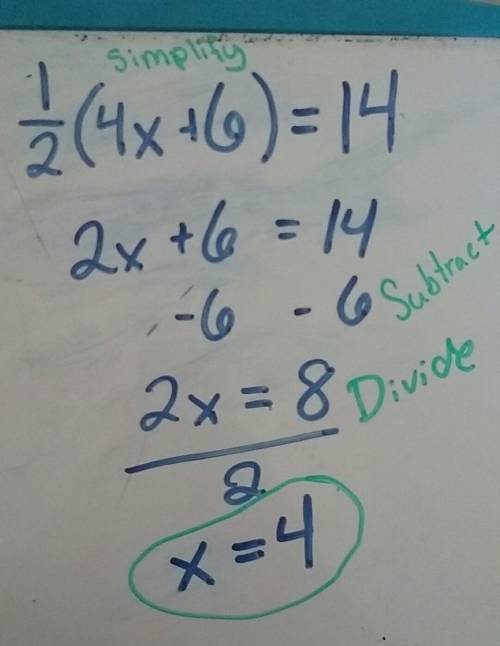 Simplify
1/2(4x+6)=14
2x+6=14
-6 -6 Subtract
2x=8 Divide
2
x=4